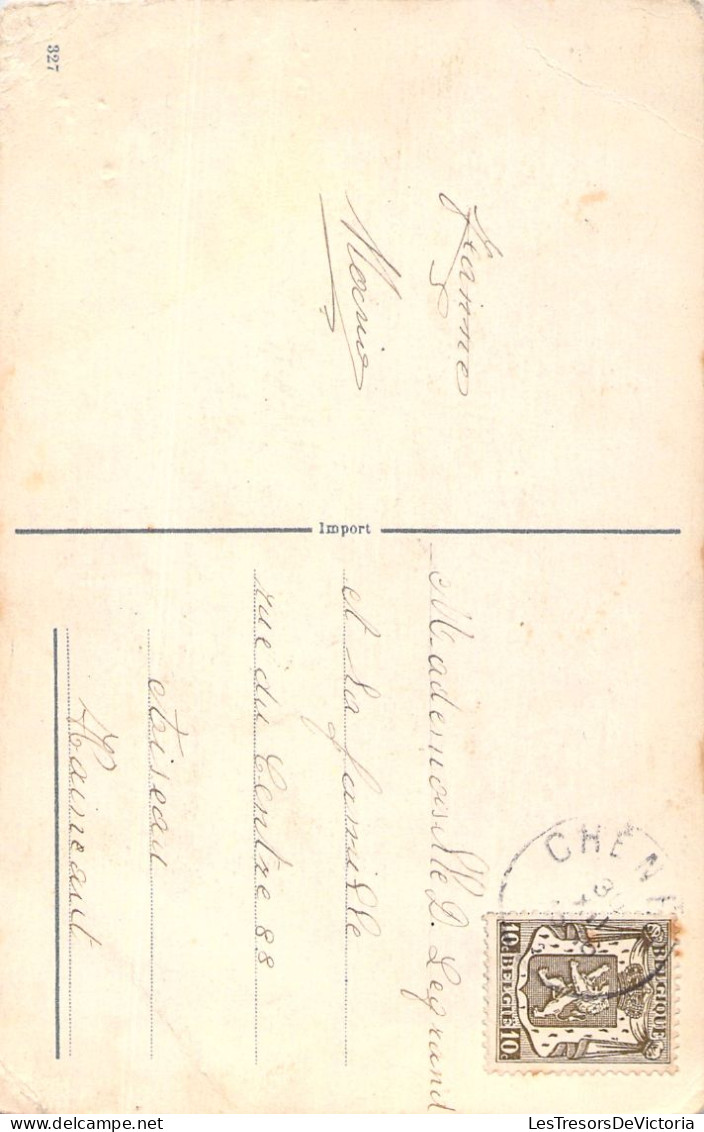 327
Jeanne
Maria
Import
Mademoiselle D. Legrand
et la famille
rue du Centre 88
Aiseau
Hainaut
CHEN
BELGIQUE
10c BELGIË 10c
LesTresorsDeVictoria - delcampe.net